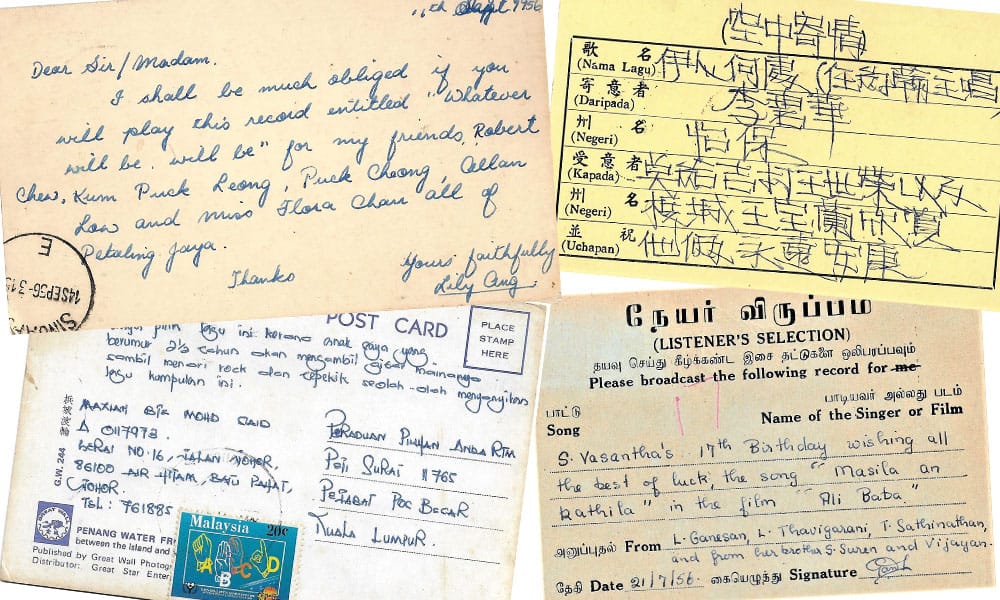 th Sept 1956
Dear Sir/Madam.
I shall be much obliged if you
will play this record entitled "Whatever
will be. will be" for my friends, Robert
Chew, Kum Puck Leong, Puck Cheong, Allan
Low and miss Flora Cham all of
Petaling Jaya.
Thanks
Yours faithfully
Lily Ang.
E
14SEP56-3 15
(空中寄情)
歌名
(Nama Lagu) 伊人何處 主唱
寄意者
(Daripada) 李蕙華
州名
(Negeri) 怡保
受意者
(Kapada) 以及
州名
(Negeri) 檳城王宝蘭
並祝
(Uchapan) 他們永遠安康
pilih lagu ini kerana anak saya yang
berumur 2½ tahun akan mengambil gitar mainannya
sambil menari rock dan terpekik seolah-olah menyanyikan
lagu kumpulan ini.
POST CARD
PLACE
STAMP
HERE
MAZIAH BTE MOHD SAID
A 0117973
BERAI NO.16, JALAN JOHOR,
86100 AIR HITAM, BATU PAHAT,
JOHOR.
TEL: 761885
PERADUAN PILIHAN ANDA RTM
PETI SURAT 11765
PEJABAT POS BESAR
KUALA LUMPUR.
G.W. 244
GREAT WALL
PENANG WATER FR
between the Island and
Published by Great Wall Photog
Distributor: Great Star Enter
Malaysia 20c
A B C D
நேயர் விருப்பம்
(LISTENER'S SELECTION)
தயவு செய்து கீழ்க்கண்ட இசை தட்டுகளை ஒலிபரப்பவும்
Please broadcast the following record for me
பாட்டு
Song
பாடியவர் அல்லது படம்
Name of the Singer or Film
S. Vasantha's 17th Birthday wishing all
the best of luck, the song "Masila an
kathila" in the film "Ali Baba"
அனுப்புதல் From L. Ganesan, L. Thavigarani, T. Sathinathan,
and from her brother S. Suren and Vijayan.
தேதி Date 21/7/56. கையெழுத்து Signature